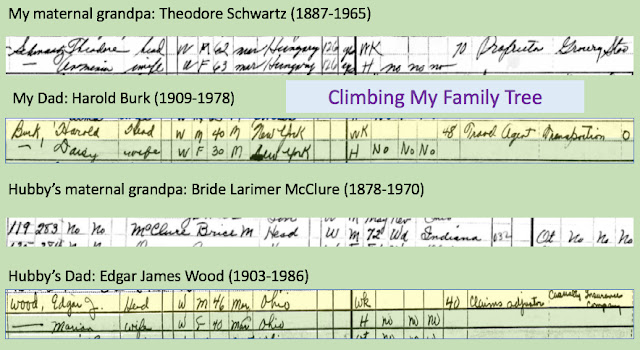 My maternal grandpa: Theodore Schwartz (1887-1965)
Schwartz Theodore head W M 62 mar Hungary 126 yes WK 70 Proprietor Grocery Store
wife W F 63 mar Hungary 126 yes H no no no
My Dad: Harold Burk (1909-1978)
Climbing My Family Tree
Burk, Harold Head W M 40 M New York WK 48 Travel Agent Transportation O
— Daisy wife W F 30 M New York H No No No
Hubby’s maternal grandpa: Bride Larimer McClure (1878-1970)
119 283 No No McClure Brice M Head W M 72 Wd Indiana Ot No No No
Hubby’s Dad: Edgar James Wood (1903-1986)
Wood, Edgar J. Head W M 46 Mar Ohio Wk 40 Claims adjustor Casualty Insurance Company
— Marian wife W F 40 Mar Ohio H no no no